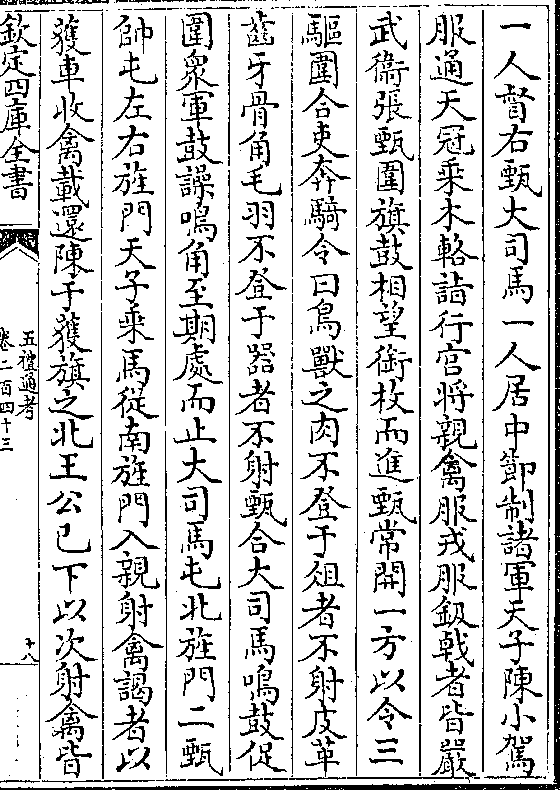 一人督右甄大司馬一人居中節制諸軍天子陳小駕
服通天冠乘木輅詣行宮將親禽服戎服鈒戟者皆嚴
武衛張甄圍旗鼓相望銜枚而進甄常開一方以令三
驅圍合吏奔騎令曰鳥獸之肉不登于俎者不射皮革
齒牙骨角毛羽不登于器者不射甄合大司馬鳴鼓促
圍衆軍鼓譟鳴角至期處而止大司馬屯北旌門二甄
帥屯左右旌門天子乘馬從南旌門入親射禽謁者以
獲車收禽載還陳于獲旗之北王公已下以次射禽皆
欽定四庫全書
五禮通考
卷二百四十三
十八